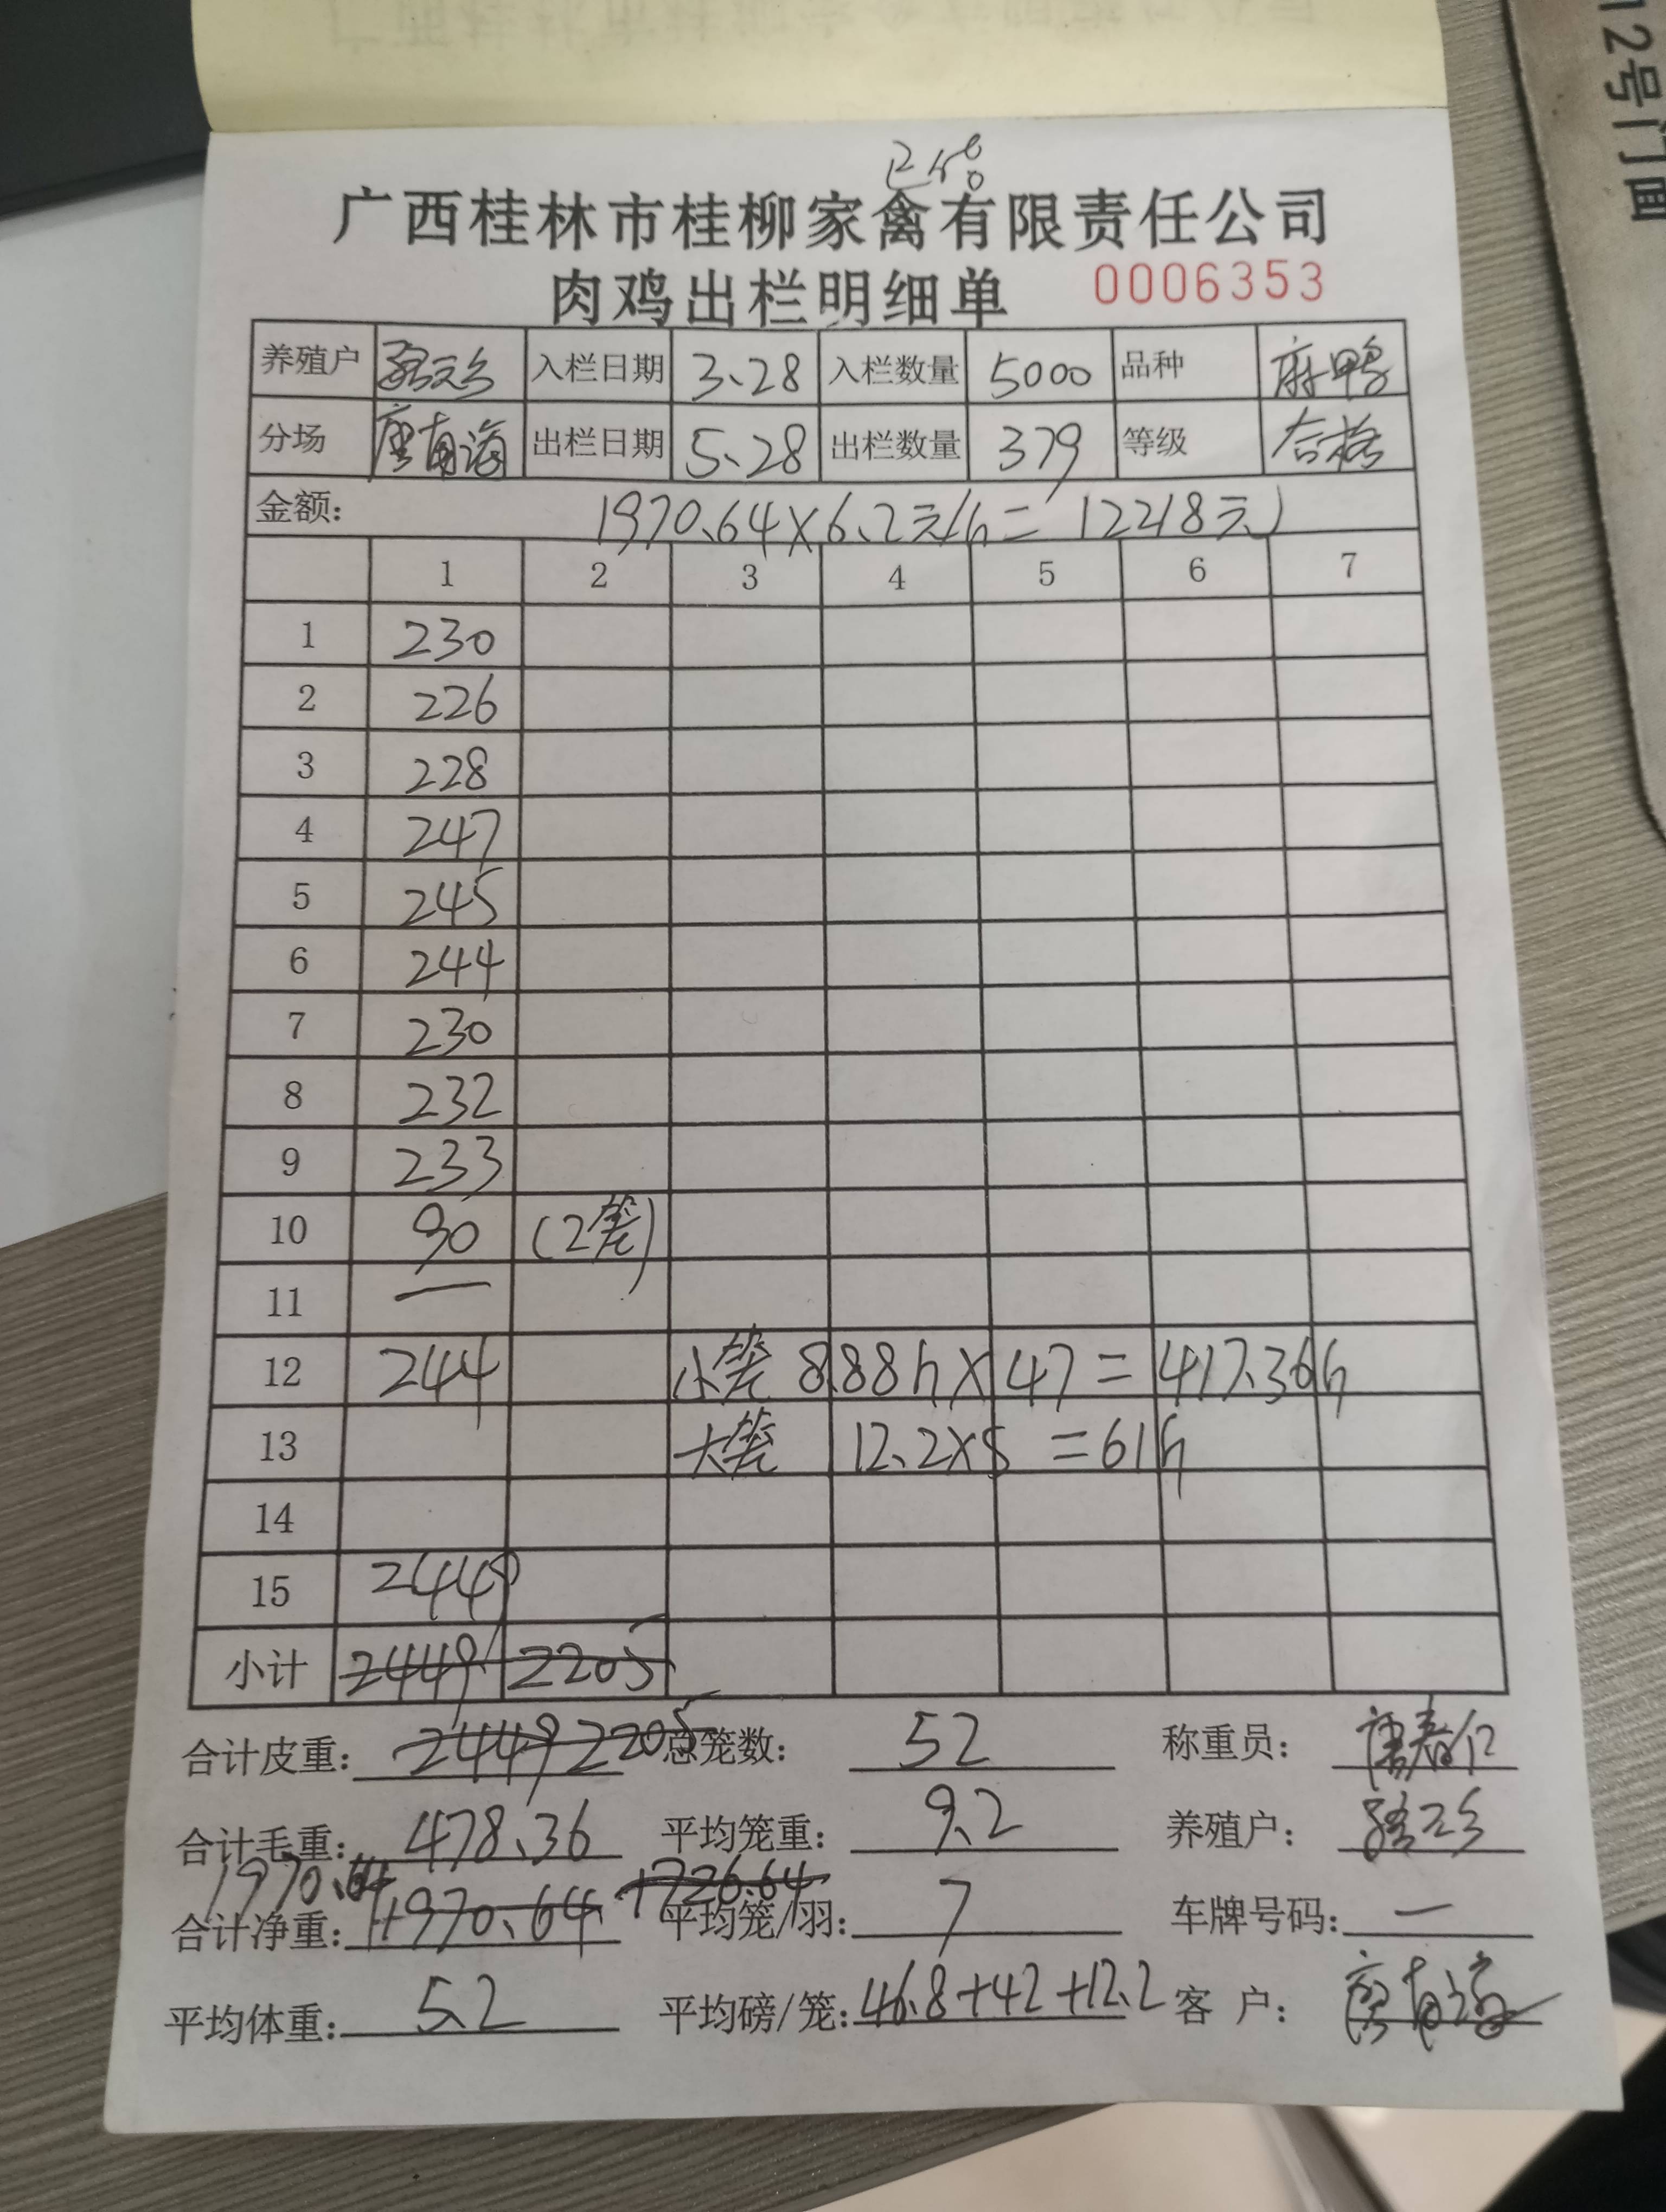 12号门面
广西桂林市桂柳家禽有限责任公司
肉鸡出栏明细单 0006353
养殖户 入栏日期 3、28 入栏数量 5000 品种 麻鸭
分场 唐南海 出栏日期 5、28 出栏数量 379 等级 合格
金额: 1970.64×6.2元/斤=12218元
1 2 3 4 5 6 7
1 230
2 226
3 228
4 247
5 245
6 244
7 230
8 232
9 233
10 90 (2笼)
11 —
12 244 小笼 8.88斤×47=417.36斤
13 大笼 12.2×5=61斤
14
15 2449
小计 2449 2205
合计皮重: 2449 2205 总笼数: 52 称重员: 唐春仁
合计毛重: 478.36 平均笼重: 9.2 养殖户:
1970.64 1726.64
合计净重: 1970.64 平均笼/羽: 7 车牌号码: —
平均体重: 5.2 平均磅/笼: 46.8+42+12.2 客 户: 唐南海